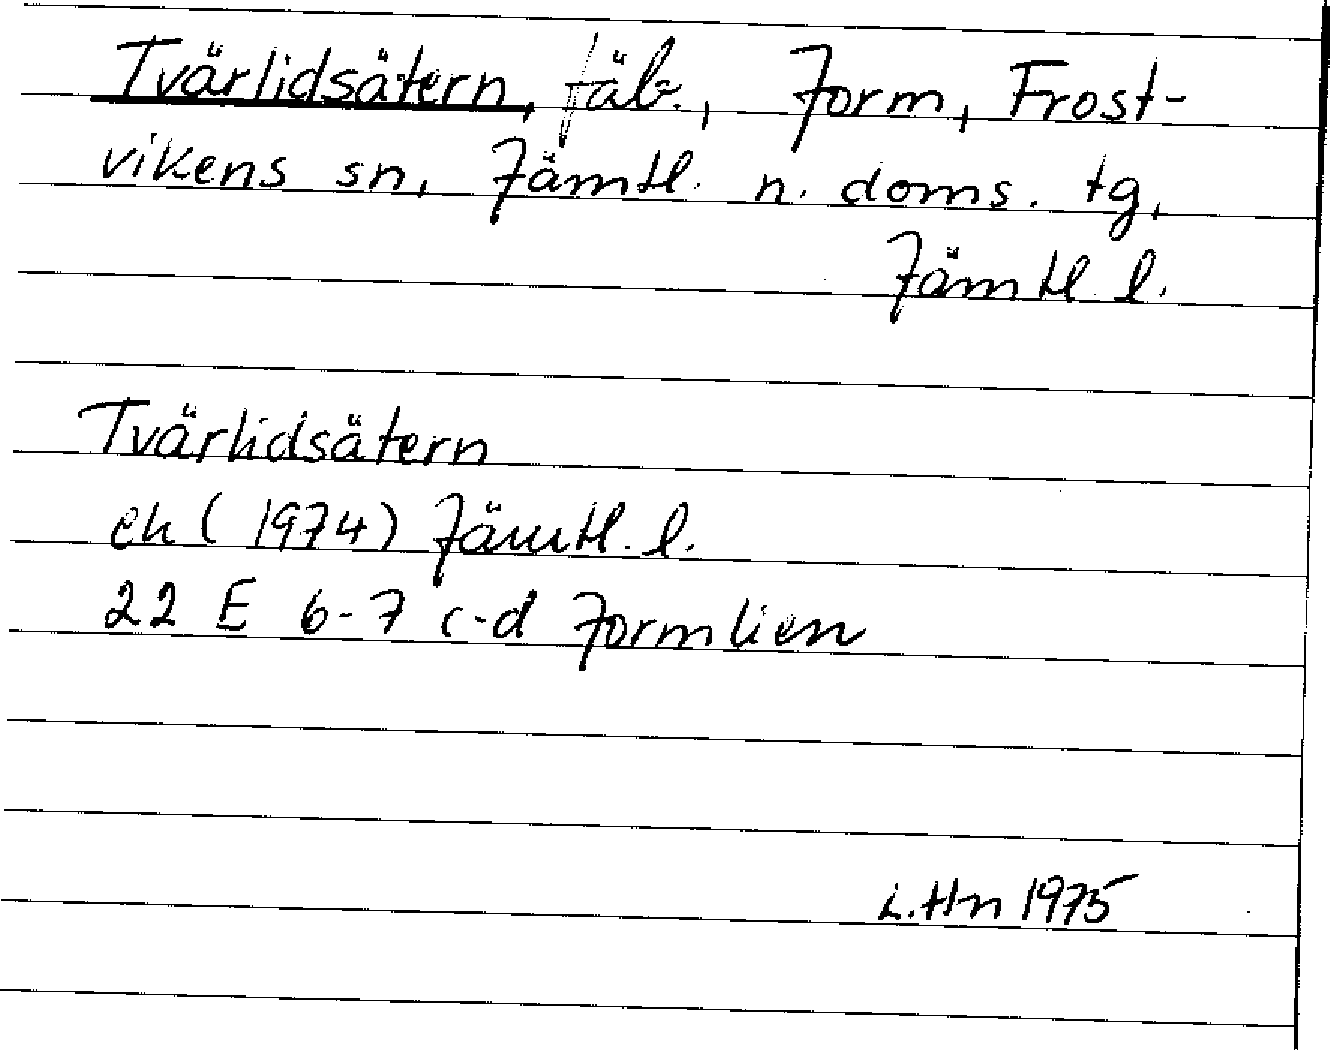 Tvärlidsätern, fäb., Jorm, Frost-
vikens sn, Jämtl. n. doms. tg,
Jämtl l.
Tvärlidsätern
ek (1974) Jämtl. l.
22 E 6-7 c-d Jormlien
L.Hn 1975